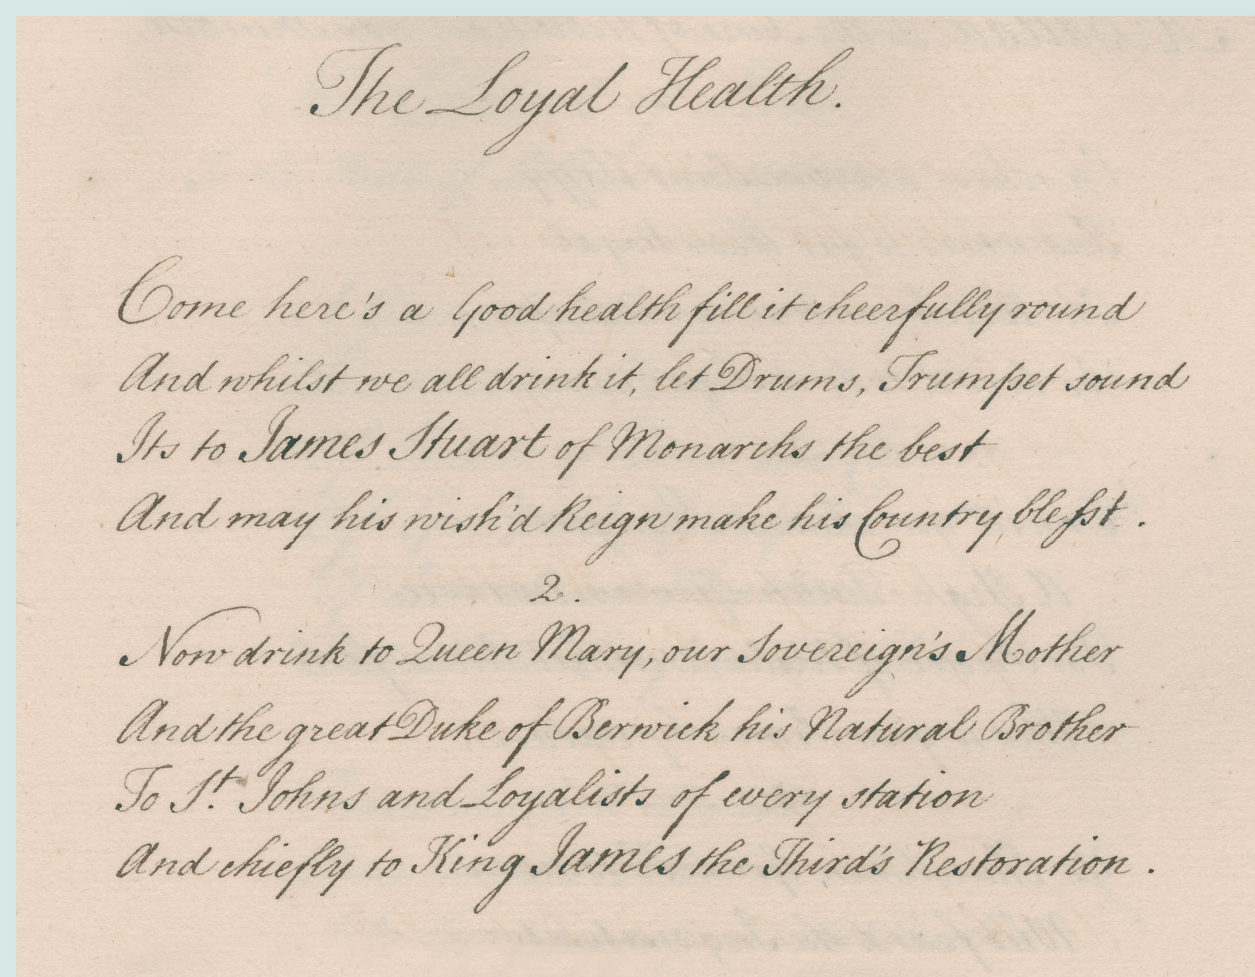 The Loyal Health.
Come here's a Good health fill it cheerfully round
And whilst we all drink it, let Drums, Trumpet sound
Its to James Stuart of Monarchs the best
And may his wish'd Reign make his Country blesst.
2.
Now drink to Queen Mary, our Sovereign's Mother
And the great Duke of Berwick his Natural Brother
To St. Johns and Loyalists of every station
And chiefly to King James the Third's Restoration.